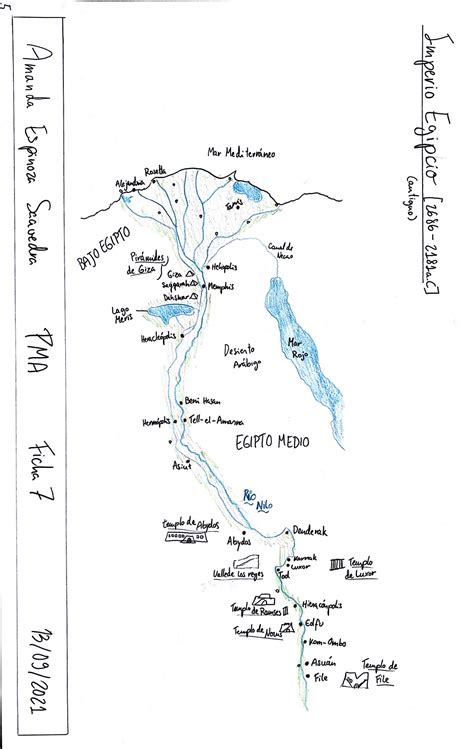 Imperio Egipcio [2686-2181a.C]
(antiguo)
Amanda Espinoza Saavedra PMA Ficha 7 13/09/2021
5
Mar Mediterráneo
Rosetta
Alejandría
Tanis
BAJO EGIPTO
Canal de
Necao
Pirámides
de Giza
Giza
Saqqarah
Dahshur
Heliópolis
Memphis
Lago
Meris
Heracleópolis
Mar
Rojo
Desierto
Arábigo
Beni Hasan
Hermópolis
Tell-el-Amarna
EGIPTO MEDIO
Asiut
Río
Nilo
templo de Abydos
Abydos
Denderah
Karnak
Luxor
Tod
Valle de los reyes
Templo
de Luxor
Templo de Ramses II
Hieracópolis
Edfu
Kom-Ombo
Asuán
File
Templo de
File